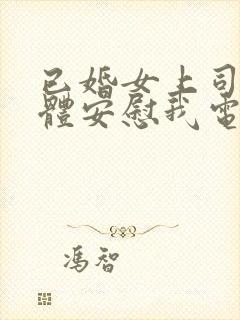 已婚女上司
體安慰我電
馮智